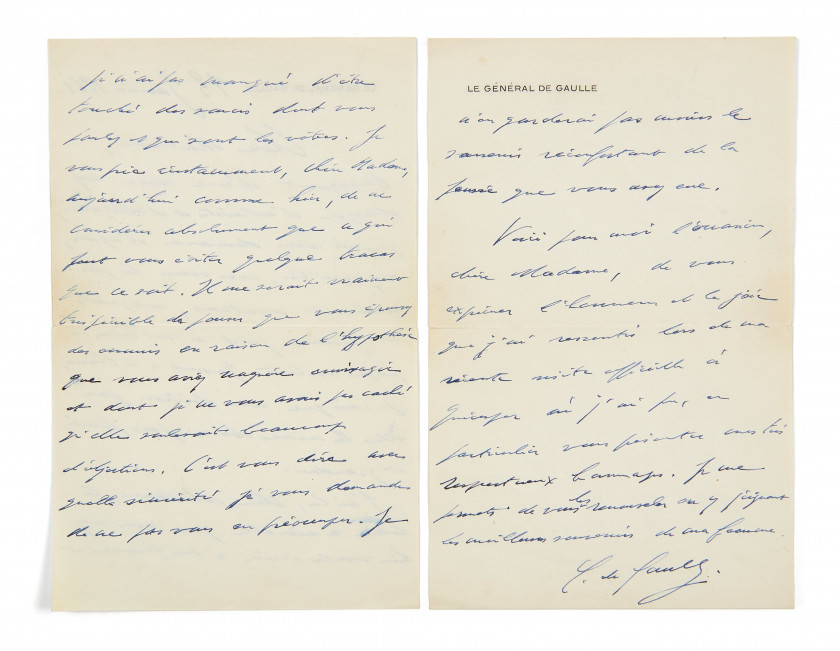 je n'ai pas manqué d'être
touché des soucis dont vous
parlez & qui sont les vôtres. Je
vous prie instamment, chère Madame,
aujourd'hui comme hier, de ne
considérer absolument que ce qui
peut vous éviter quelque tracas
que ce soit. Il me serait vraiment
très pénible de penser que vous éprouvez
des ennuis en raison de l'hypothèse
que vous aviez naguère envisagée
et dont je ne vous avais pas caché
qu'elle soulevait beaucoup
d'objections. C'est vous dire avec
quelle sincérité je vous demande
de ne pas vous en préoccuper. Je
LE GÉNÉRAL DE GAULLE
n'en garderai pas moins le
souvenir réconfortant de la
pensée que vous avez eue.
Voici pour moi l'occasion,
chère Madame, de vous
exprimer l'honneur et la joie
que j'ai ressentis lors de ma
récente visite officielle à
Quimper où j'ai pu, en
particulier vous présenter mes très
respectueux hommages. Je me
permets de vous les renouveler en y joignant
les meilleurs souvenirs de ma femme.
C. de Gaulle.